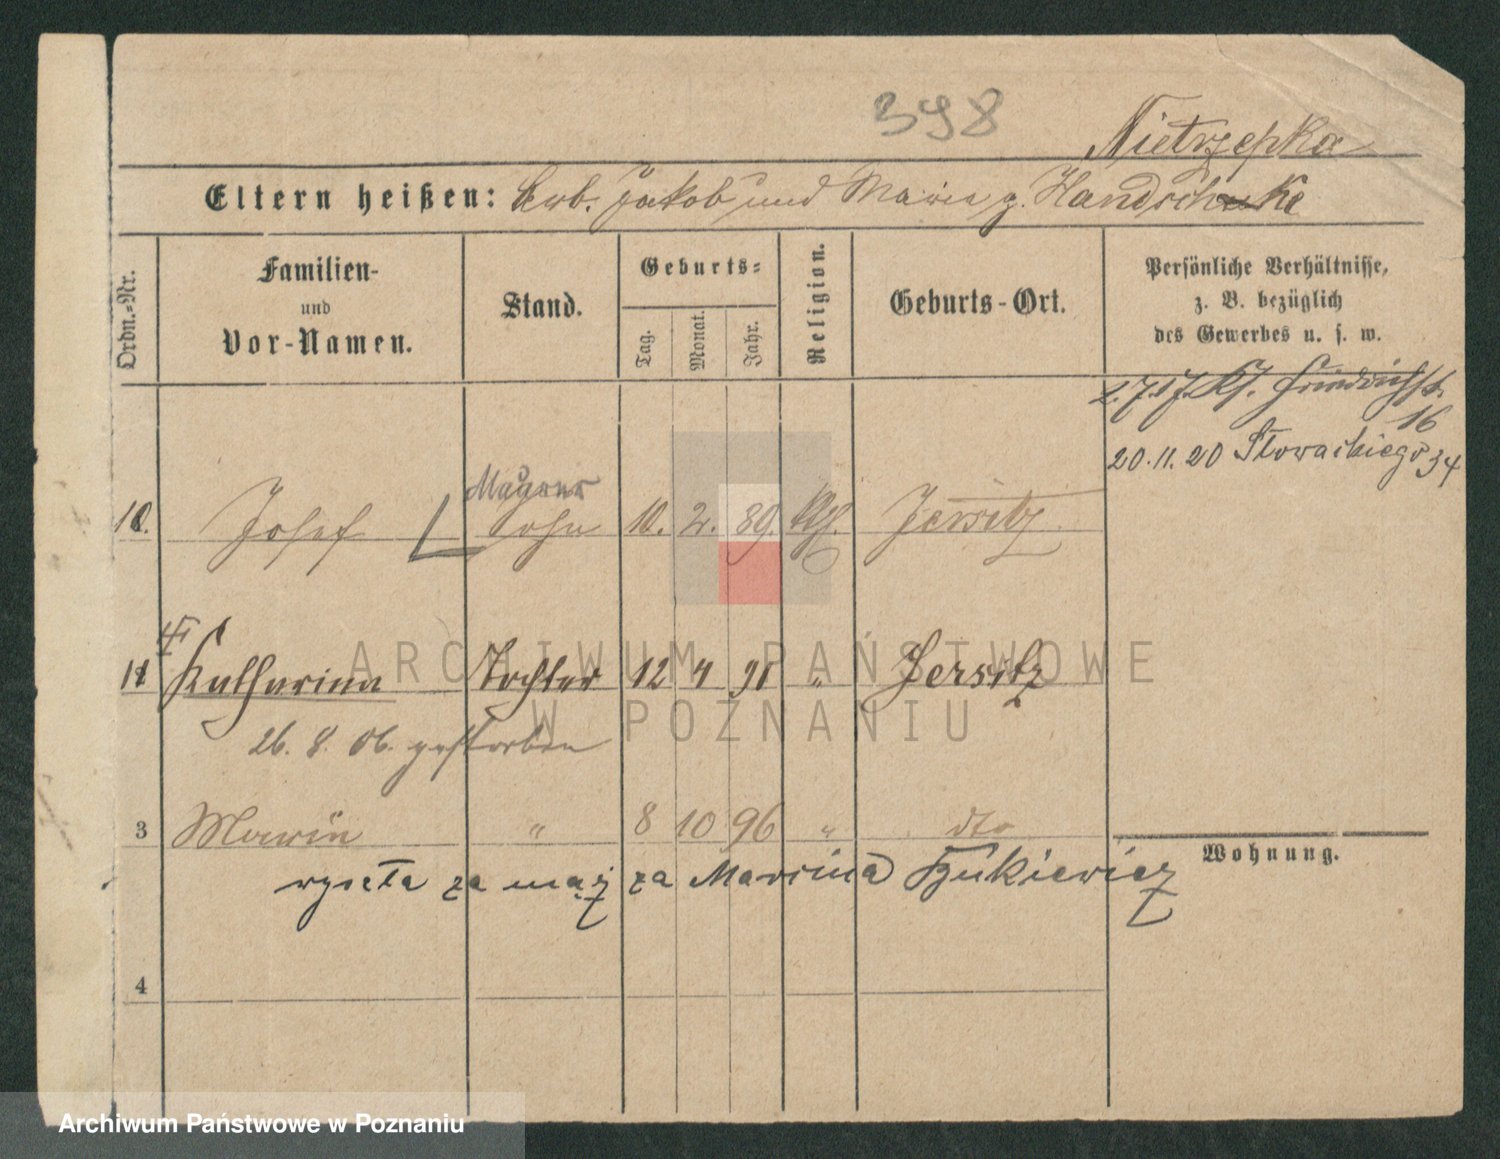 398
Nietrzepka
Eltern heißen: Arb. Jakob und Marie g. Handschke
Ordn.-Nr.
Familien- und Vor-Namen.
Stand.
Geburts-
Tag.
Monat.
Jahr.
Religion.
Geburts-Ort.
Persönliche Verhältnisse,
z. B. bezüglich
des Gewerbes u. s. w.
16
20.11.20 Słowackiego 34
Maurer
10. Josef Sohn 10. 2. 89. kth. Jersitz
11 Katharina Tochter 12 4 91 " Jersitz
26. 8. 06. gestorben
3 Marie " 8 10 96 " dto
Wohnung.
wyszła za mąż za Marcina
4
ARCHIWUM PAŃSTWOWE
W POZNANIU
Archiwum Państwowe w Poznaniu